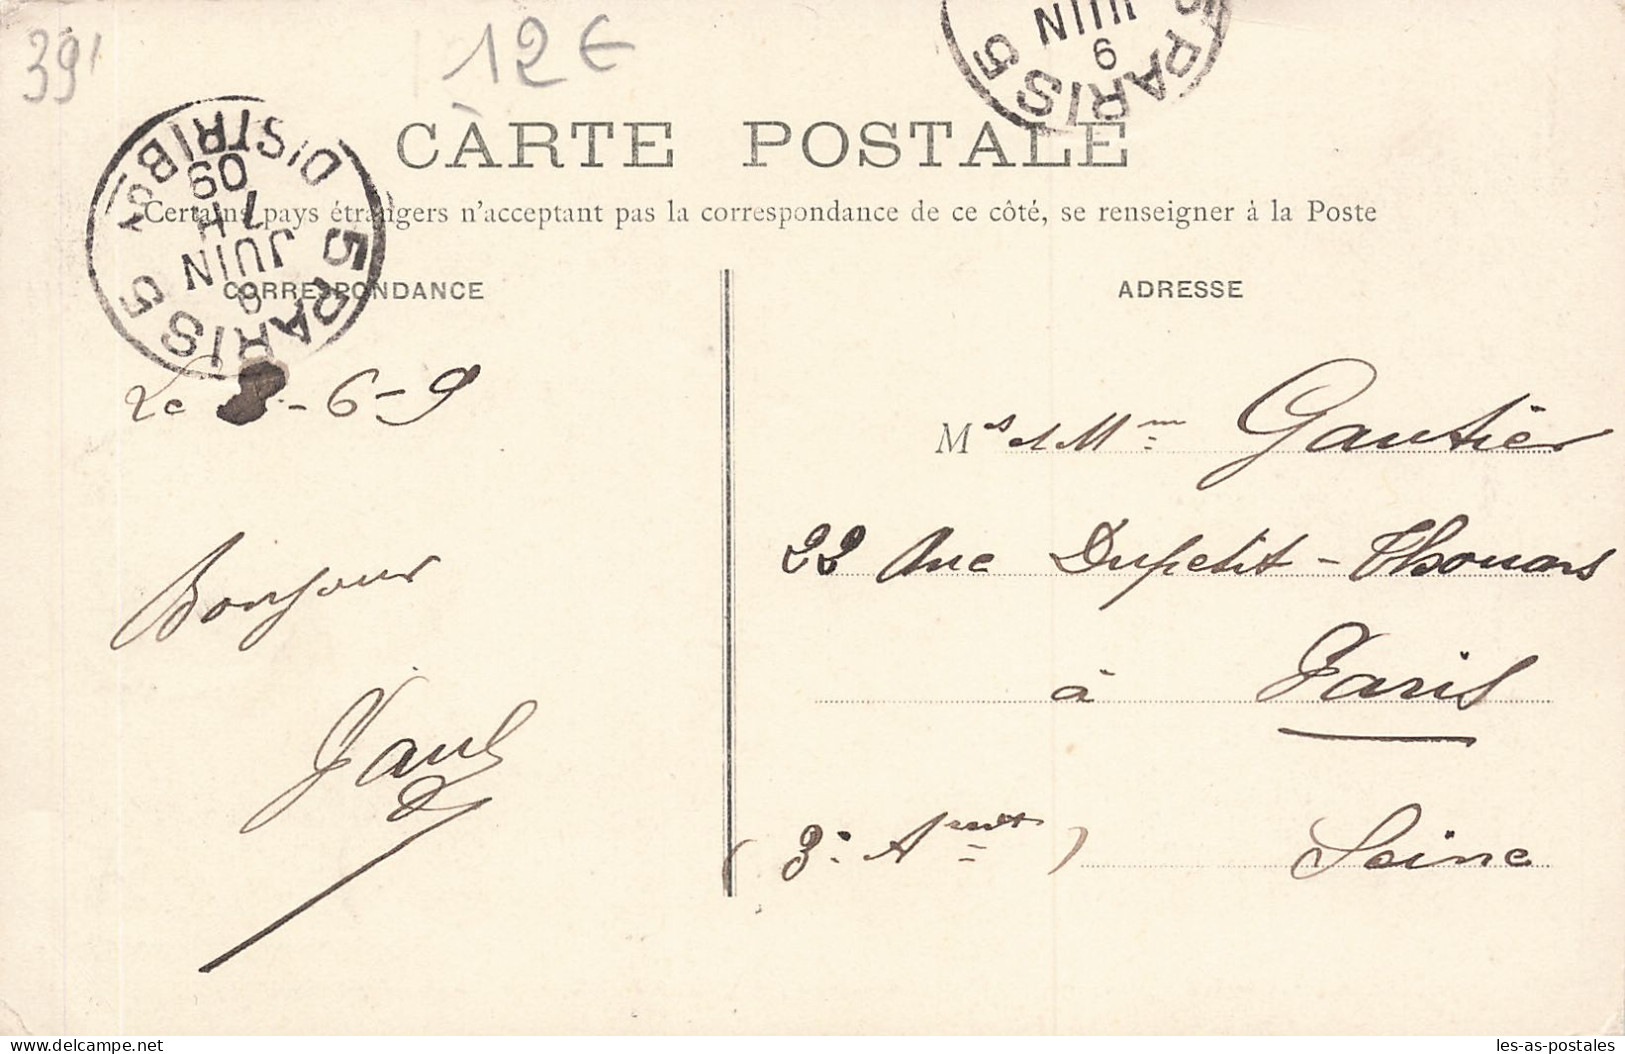 39'
12€
JUIN
9
PARIS 5
CARTE POSTALE
PARIS 5 DISTRIBON
09
7H
JUIN
9
Certains pays étrangers n'acceptant pas la correspondance de ce côté, se renseigner à la Poste
CORRESPONDANCE
ADRESSE
Le -6-9
Bonjour
Paul
Mrs et Mme Gautier
22 Rue Dupetit-Thouars
à Paris
(3e Arrt) Seine
Delcampe.net
les-as-postales